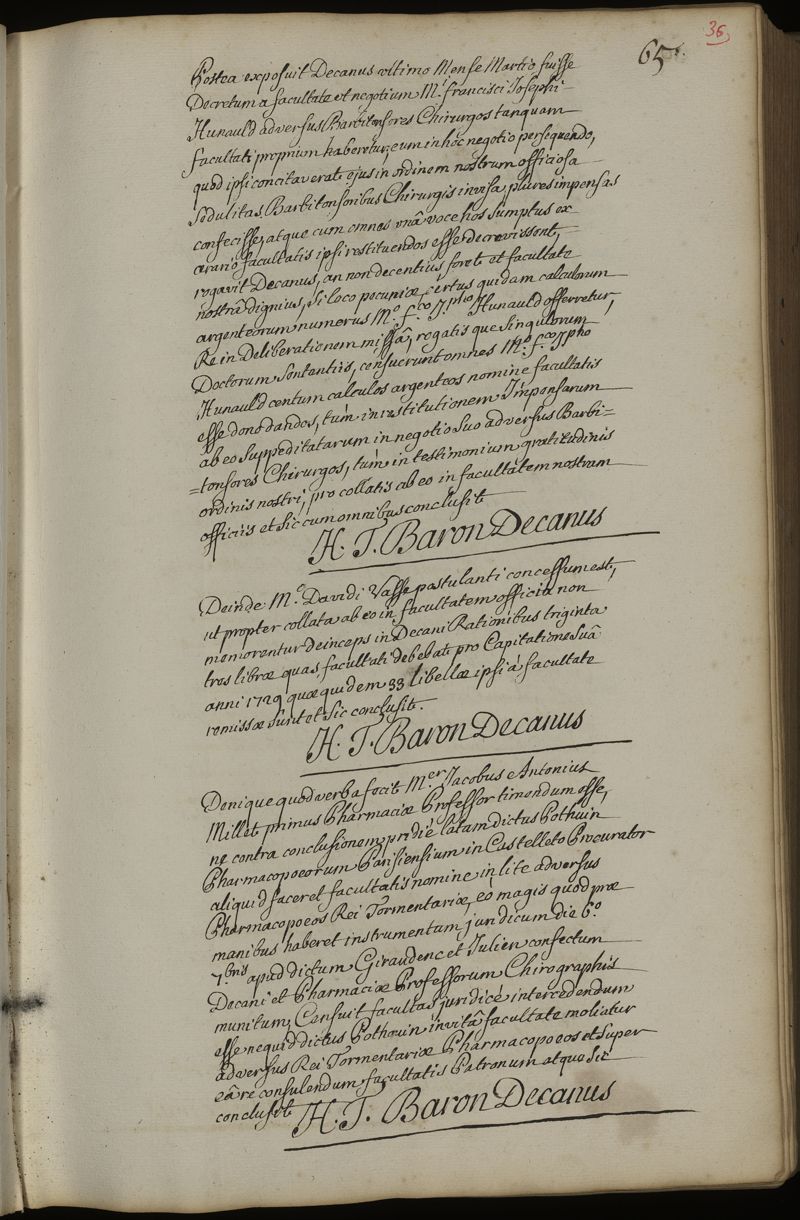 36
65.
Postea exposuit Decanus ultimo Mense Martio fuisse
Decretum a facultate ut negotium M.i francisci Josephi
Hunauld adversus Barbitonsores Chirurgos tanquam
facultati proprium haberetur; eum in hoc negotio persequendo,
quod ipsi concitaverat ejus in ordinem nostrum officiosa
Sedulitas, Barbitonsoribus Chirurgis invisa, plures impensas
confecisse; atque cum omnes unâ voce hos Sumptus ex
ærario facultatis ipsi restituendos esse decrevissent,
rogavit Decanus, an non decentius foret et facultate
nostrâ dignius, Si loco pecuniæ certus quidam calculorum
argenteorum numerus M.o f.co J.pho Hunauld offerretur,
Re in Deliberationem missâ, rogatisque Singulorum
Doctorum Sententiis, censuerunt omnes M.o f.co J.pho
Hunauld centum calculos argenteos nomine facultatis
esse dono dandos, tum in restitutionem Impensarum
ab eo Suppeditatarum in negotio Suo adversus Barbi=
=tonsores Chirurgos, tum in testimonium gratitudinis
ordinis nostri, pro collatis ab eo in facultatem nostram
officiis et Sic cum omnibus conclusit
H. T. Baron Decanus
Deinde M.o Davidi Vasse postulanti concessum est,
ut propter collata ab eo in facultatem officia non
memorentur deinceps in Decani Rationibus triginta
tres libræ quas facultati debebat pro Capitatione Suâ
anni 1729 quæ quidem 33 libellæ ipsi à facultate
remissæ Sunt et Sic conclusit.
H. T. Baron Decanus
Denique quod verba fecit M.er Jacobus Antonius
Millet primus Pharmaciæ Professor timendum esse,
ne contra conclusionem pridiè latam dictus Pothuin
Pharmacopoeorum Parisiensium in Castelleto Procurator
aliquid faceret facultatis nomine in lite adversus
Pharmacopoeos Rei Tormentariæ, eò magis quod præ
manibus haberet instrumentum juridicum die 6.o
7.bris apud dictum Giraudenc et Julien confectum
Decani et Pharmaciæ Professorum Chirographis
munitum, Censuit facultas juridicè intercedendum
esse ne quid dictus Pothuin invitâ facultate moliatur
adversus Rei Tormentariæ Pharmacopoeos et Super
eâ re consulendum facultatis Patronum atque Sic
conclusit H. T. Baron Decanus